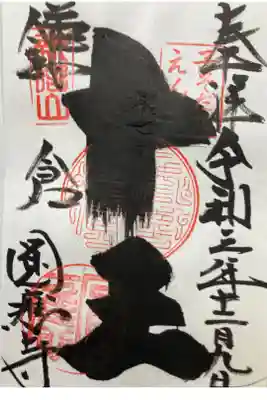 奉拝 令和三年十二月九日
十王
鎌倉
圓應寺
新居山